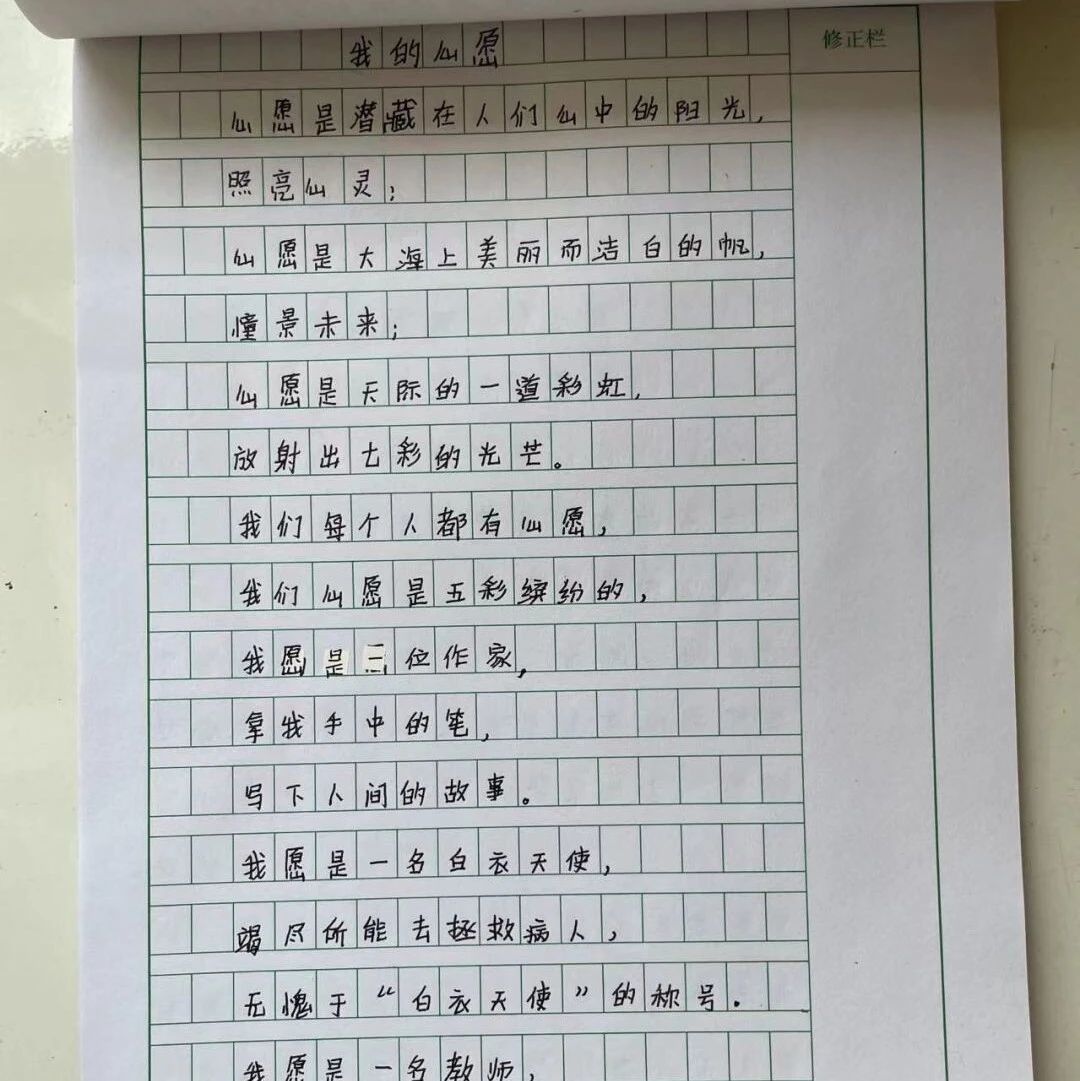 我的心愿
修正栏
心愿是潜藏在人们心中的阳光，
照亮心灵；
心愿是大海上美丽而洁白的帆，
憧景未来；
心愿是天际的一道彩虹，
放射出七彩的光芒。
我们每个人都有心愿，
我们心愿是五彩缤纷的，
我愿是一位作家，
拿我手中的笔，
写下人间的故事。
我愿是一名白衣天使，
竭尽所能去拯救病人，
无愧于“白衣天使”的称号．
我愿是一名教师，